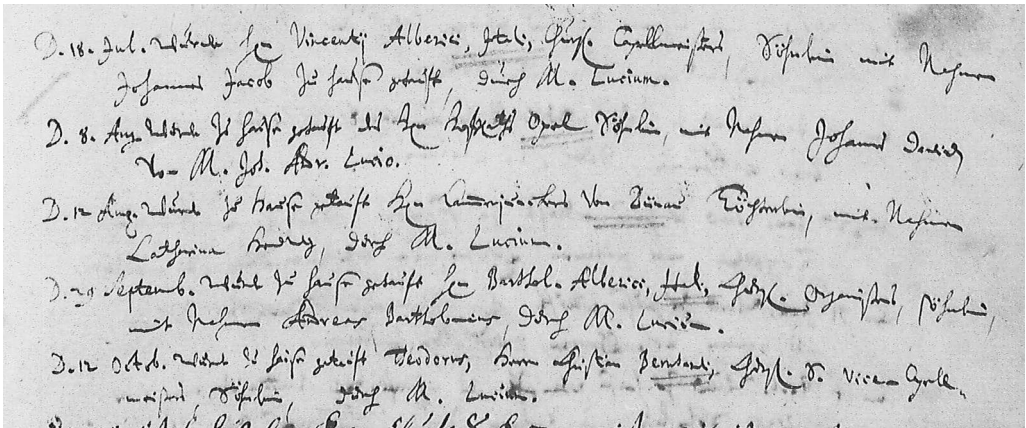 D. 18. Jul. wurde H. Vincentij Alberici, Itali, Churf. Capellmeisters, Söhnlein mit Nahmen
Johannes Jacob zu hause getauft, durch M. Lucium.
D. 8. Aug. wurde zu hause getauft des H. Opel Söhnlein, mit Nahmen Johannes David
von M. Joh. Andr. Lucio.
D. 12 Aug. wurde zu Hause getauft H. Cammerjunckers von Bünau Töchterlein, mit Nahmen
Catharina Hedwig, durch M. Lucium.
D. 29 Septemb. wurde zu hause getauft H. Barthol. Alberici, Itali, Churf. Organistens, söhnlein,
mit Nahmen Andreas Bartholomeus, durch M. Lucium.
D. 12 Octob. wurde zu hause getauft Teodorus, Herrn Christian Bernhardi, Churf. S. Vice Capell-
meisters, Söhnlein, durch M. Lucium.